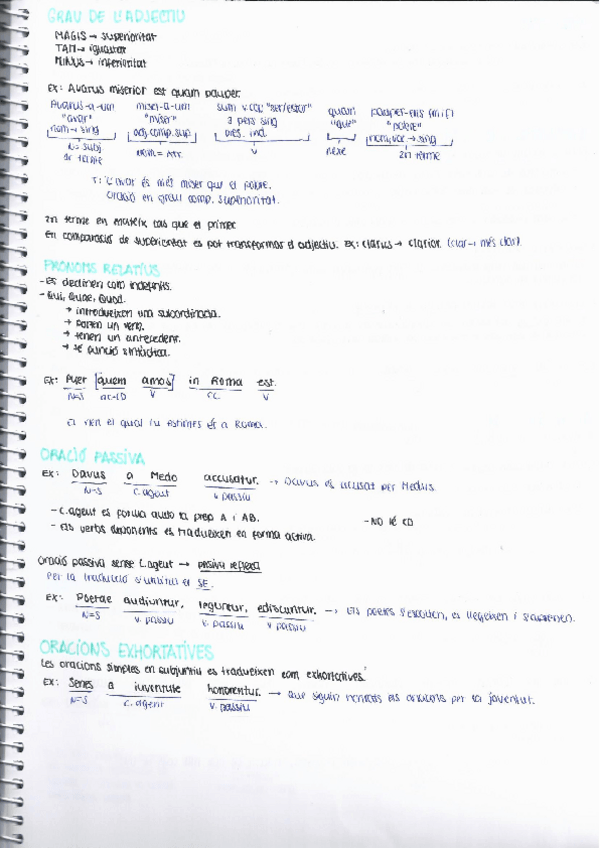 GRAU DE L'ADJECTIU
MAGIS → superioritat
TAM → igualtat
MINUS → inferioritat
EX: Avarus miserior est quam pauper.
Avarus-a-um miser-a-um sum v.cop "ser/estar" quam pauper-eris (m i f)
"avar" "míser" 3 pers sing "que" "pobre"
nom → sing adj. comp. sup pres. ind. nom, voc → sing
N = subj nom = Atr. V nexe 2n terme
1r terme
T: L'avar és més míser que el pobre.
Oració en grau comp. superioritat.
2n terme en mateix cas que el primer
En comparació de superioritat es pot transformar el adjectiu. EX: clarus → clarior. (clar → més clar).
PRONOMS RELATIUS
- Es declinen com indefinits.
- Qui, Quae, Quod.
→ introdueixen una subordinada.
→ porten un verb.
→ tenen un antecedent.
→ té funció sintàctica.
EX: Puer [quem amas] in Roma est.
N=S AC=CD V CC V
El nen el qual tu estimes és a Roma.
ORACIÓ PASSIVA
EX: Davus a Medo accusatur. → Davus és acusat per Medus.
N=S C.agent V. passiu
- C.agent es forma amb la prep A i AB. - NO té CD
- Els verbs deponents es tradueixen en forma activa.
Oració passiva sense C.agent → passiva reflexa
Per la traducció s'utilitza el SE.
EX: Poetae audiuntur, leguntur, ediscuntur. → Els poetes s'escolten, es llegeixen i s'aprenen.
N=S V. passiu V. passiu V. passiu
ORACIONS EXHORTATIVES
Les oracions simples en subjuntiu es tradueixen com exhortatives.
EX: Senes a iuventute honorentur. → Que siguin els ancians per la joventut.
N=S C.agent V. passiu